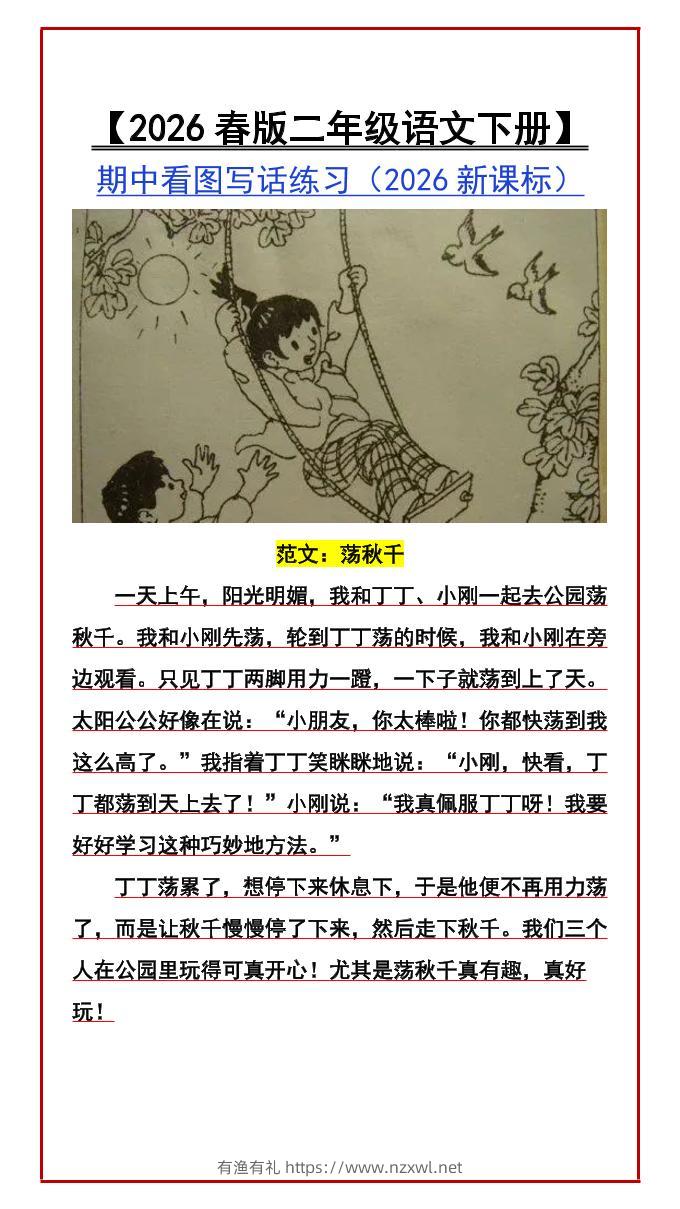 【2026 春版二年级语文下册】
期中看图写话练习（2026 新课标）
范文：荡秋千
一天上午，阳光明媚，我和丁丁、小刚一起去公园荡
秋千。我和小刚先荡，轮到丁丁荡的时候，我和小刚在旁
边观看。只见丁丁两脚用力一蹬，一下子就荡到上了天。
太阳公公好像在说：“小朋友，你太棒啦！你都快荡到我
这么高了。”我指着丁丁笑眯眯地说：“小刚，快看，丁
丁都荡到天上去了！”小刚说：“我真佩服丁丁呀！我要
好好学习这种巧妙地方法。”
丁丁荡累了，想停下来休息下，于是他便不再用力荡
了，而是让秋千慢慢停了下来，然后走下秋千。我们三个
人在公园里玩得可真开心！尤其是荡秋千真有趣，真好
玩！
有渔有礼 https://www.nzxwl.net